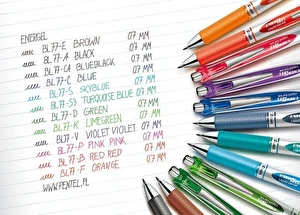 ENERGEL
BL77-E BROWN 0.7 MM
BL77-A BLACK 0.7 MM
BL77-CA BLUEBLACK 0.7 MM
BL77-C BLUE 0.7 MM
BL77-S SKYBLUE 0.7 MM
BL77-S3 TURQUOISE BLUE 0.7 MM
BL77-D GREEN 0.7 MM
BL77-K LIMEGREEN 0.7 MM
BL77-V VIOLET VIOLET 0.7 MM
BL77-P PINK PINK 0.7 MM
BL77-B RED RED 0.7 MM
BL77-F ORANGE 0.7 MM
WWW.PENTEL.PL